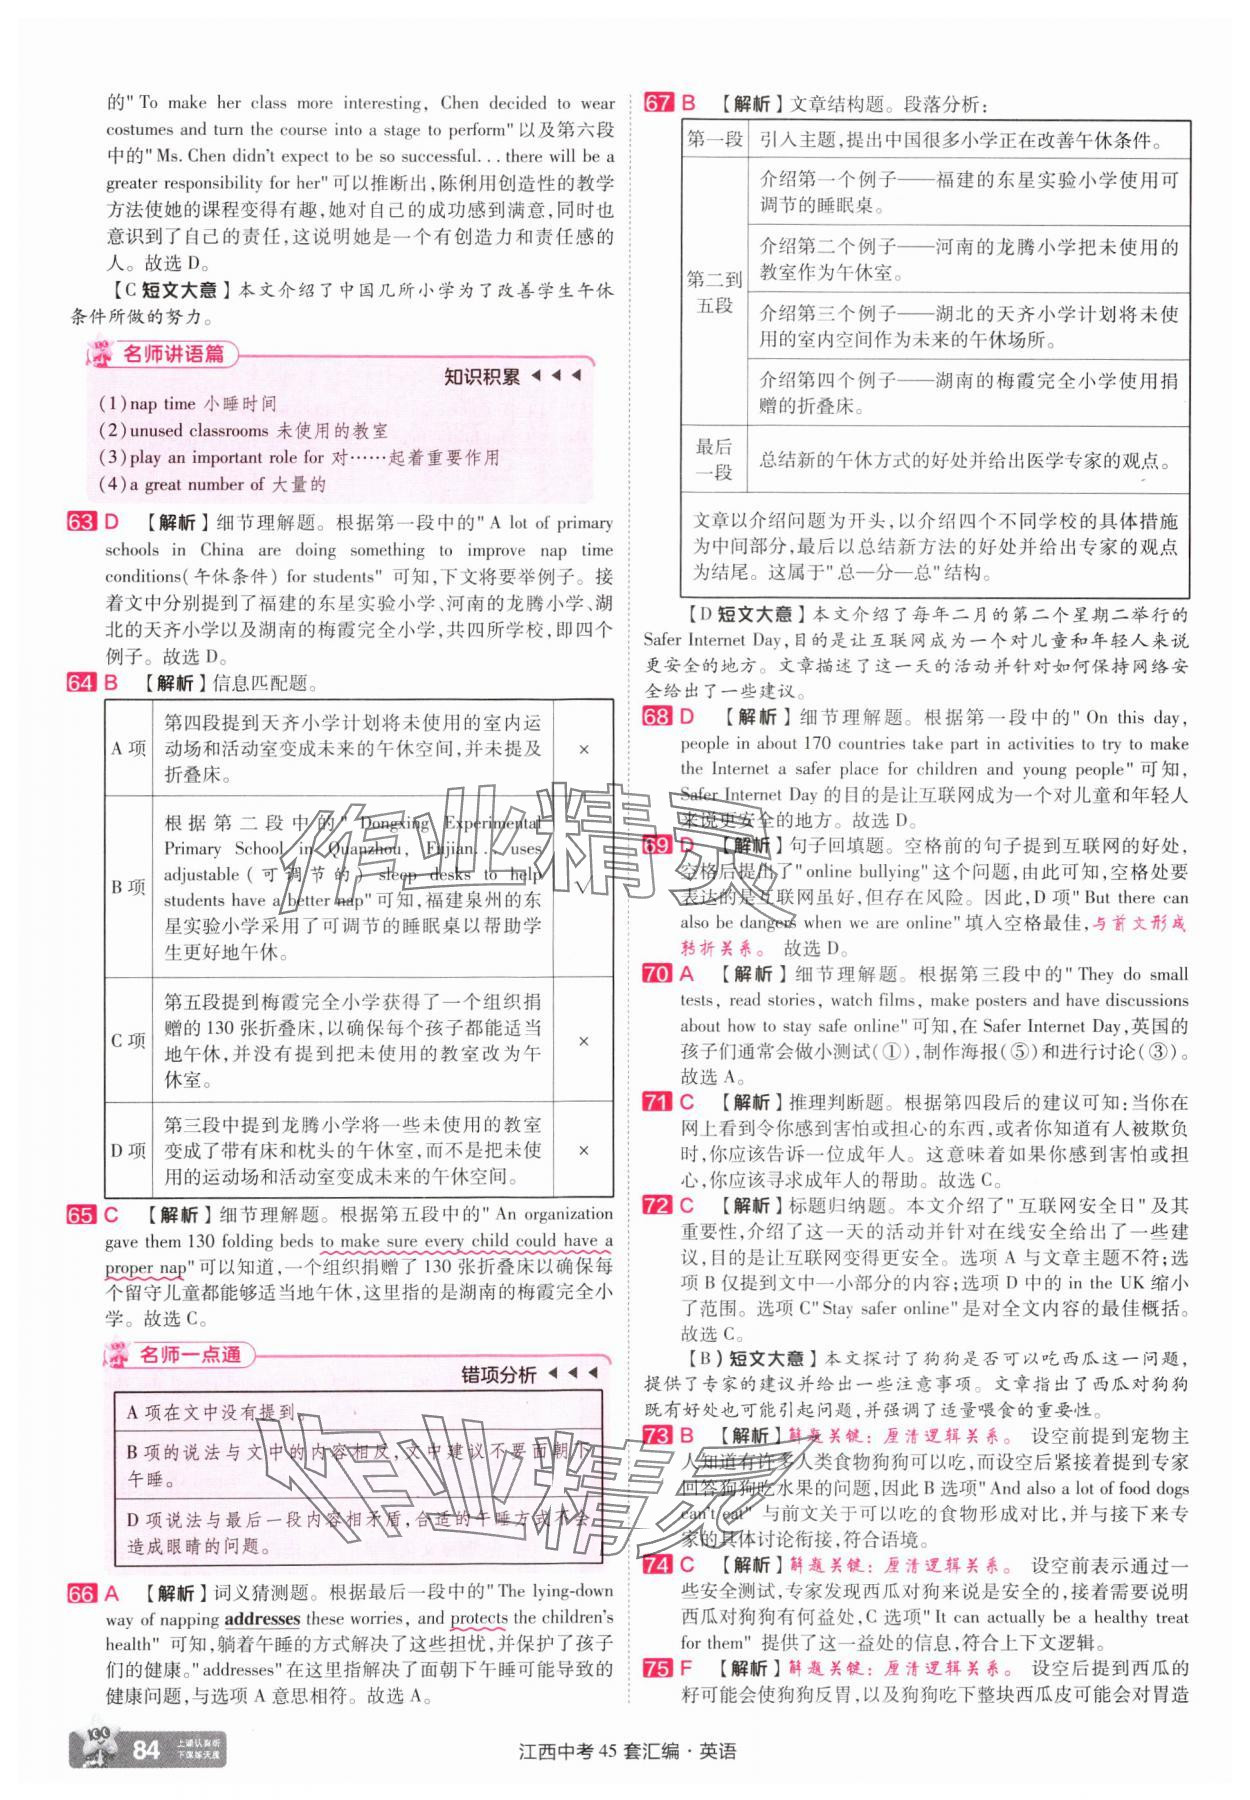 的" To make her class more interesting, Chen decided to wear
costumes and turn the course into a stage to perform"以及第六段
中的"Ms. Chen didn't expect to be so successful. . . there will be a
greater responsibility for her"可以推断出,陈俐用创造性的教学
方法使她的课程变得有趣,她对自己的成功感到满意,同时也
意识到了自己的责任,这说明她是一个有创造力和责任感的
人。故选 D。
【C 短文大意】本文介绍了中国几所小学为了改善学生午休
条件所做的努力。
名师讲语篇
知识积累
(1)nap time 小睡时间
(2)unused classrooms 未使用的教室
(3)play an important role for 对……起着重要作用
(4)a great number of 大量的
63 D 【解析】细节理解题。根据第一段中的" A lot of primary
schools in China are doing something to improve nap time
conditions(午休条件) for students" 可知,下文将要举例子。接
着文中分别提到了福建的东星实验小学、河南的龙腾小学、湖
北的天齐小学以及湖南的梅霞完全小学,共四所学校,即四个
例子。故选 D。
64 B 【解析】信息匹配题。
A 项
第四段提到天齐小学计划将未使用的室内运
动场和活动室变成未来的午休空间,并未提及
折叠床。
×
B 项
根据第二段中的" Dongxing Experimental
Primary School in Quanzhou, Fujian. . . uses
adjustable(可调节的) sleep desks to help
students have a better nap"可知,福建泉州的东
星实验小学采用了可调节的睡眠桌以帮助学
生更好地午休。
√
C 项
第五段提到梅霞完全小学获得了一个组织捐
赠的 130 张折叠床,以确保每个孩子都能适当
地午休,并没有提到把未使用的教室改为午
休室。
×
D 项
第三段中提到龙腾小学将一些未使用的教室
变成了带有床和枕头的午休室,而不是把未使
用的运动场和活动室变成午休空间。
×
65 C 【解析】细节理解题。根据第五段中的" An organization
gave them 130 folding beds to make sure every child could have a
proper nap"可以知道,一个组织捐赠了 130 张折叠床以确保每
个留守儿童都能够适当地午休,这里指的是湖南的梅霞完全小
学。故选 C。
名师一点通
错项分析
A 项在文中没有提到。
B 项的说法与文中的内容相反,文中建议不要面朝下
午睡。
D 项说法与最后一段内容相矛盾,合适的午睡方式不会
造成眼睛的问题。
66 A 【解析】词义猜测题。根据最后一段中的"The lying-down
way of napping addresses these worries, and protects the children's
health" 可知,躺着午睡的方式解决了这些担忧,并保护了孩子
们的健康。"addresses"在这里指解决了面朝下午睡可能导致的
健康问题,与选项 A 意思相符。故选 A。
67 B 【解析】文章结构题。段落分析:
第一段
引入主题,提出中国很多小学正在改善午休条件。
第二到
五段
介绍第一个例子——福建的东星实验小学使用可
调节的睡眠桌。
介绍第二个例子——河南的龙腾小学把未使用的
教室作为午休室。
介绍第三个例子——湖北的天齐小学计划将未使
用的室内空间作为未来的午休场所。
介绍第四个例子——湖南的梅霞完全小学使用捐
赠的折叠床。
最后
一段
总结新的午休方式的好处并给出医学专家的观点。
文章以介绍问题为开头,以介绍四个不同学校的具体措施
为中间部分,最后以总结新方法的好处并给出专家的观点
为结尾。这属于"总—分—总"结构。
【D 短文大意】本文介绍了每年二月的第二个星期二举行的
Safer Internet Day,目的是让互联网成为一个对儿童和年轻人来说
更安全的地方。文章描述了这一天的活动并针对如何保持网络安
全给出了一些建议。
68 D 【解析】细节理解题。根据第一段中的" On this day,
people in about 170 countries take part in activities to try to make
the Internet a safer place for children and young people"可知,
Safer Internet Day 的目的是让互联网成为一个对儿童和年轻人
来说更安全的地方。故选 D。
69 D 【解析】句子回填题。空格前的句子提到互联网的好处,
空格后提出了"online bullying"这个问题,由此可知,空格处要
表达的是互联网虽好,但存在风险。因此,D 项"But there can
also be dangers when we are online"填入空格最佳,与前文形成
转折关系。故选 D。
70 A 【解析】细节理解题。根据第三段中的" They do small
tests, read stories, watch films, make posters and have discussions
about how to stay safe online"可知,在 Safer Internet Day,英国的
孩子们通常会做小测试(①),制作海报(⑤)和进行讨论(③)。
故选 A。
71 C 【解析】推理判断题。根据第四段后的建议可知:当你在
网上看到令你感到害怕或担心的东西,或者你知道有人被欺负
时,你应该告诉一位成年人。这意味着如果你感到害怕或担
心,你应该寻求成年人的帮助。故选 C。
72 C 【解析】标题归纳题。本文介绍了"互联网安全日"及其
重要性,介绍了这一天的活动并针对在线安全给出了一些建
议,目的是让互联网变得更安全。选项 A 与文章主题不符;选
项 B 仅提到文中一小部分的内容;选项 D 中的 in the UK 缩小
了范围。选项 C"Stay safer online"是对全文内容的最佳概括。
故选 C。
【B)短文大意】本文探讨了狗狗是否可以吃西瓜这一问题,
提供了专家的建议并给出一些注意事项。文章指出了西瓜对狗狗
既有好处也可能引起问题,并强调了适量喂食的重要性。
73 B 【解析】解题关键:厘清逻辑关系。设空前提到宠物主
人知道有许多人类食物狗狗可以吃,而设空后紧接着提到专家
回答狗狗吃水果的问题,因此 B 选项"And also a lot of food dogs
can't eat" 与前文关于可以吃的食物形成对比,并与接下来专
家的具体讨论衔接,符合语境。
74 C 【解析】解题关键:厘清逻辑关系。设空前表示通过一
些安全测试,专家发现西瓜对狗来说是安全的,接着需要说明
西瓜对狗狗有何益处,C 选项"It can actually be a healthy treat
for them" 提供了这一益处的信息,符合上下文逻辑。
75 F 【解析】解题关键:厘清逻辑关系。设空后提到西瓜的
籽可能会使狗狗反胃,以及狗狗吃下整块西瓜皮可能会对胃造
84
江西中考 45 套汇编·英语
作业精灵
作业精灵